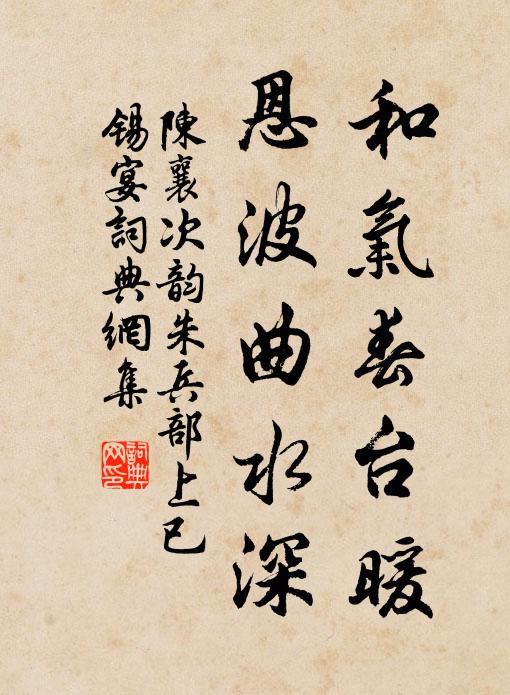 和氣春台暖
恩波曲水深
陳襄次韵朱兵部上巳
錫宴詞典網集
詞典网印